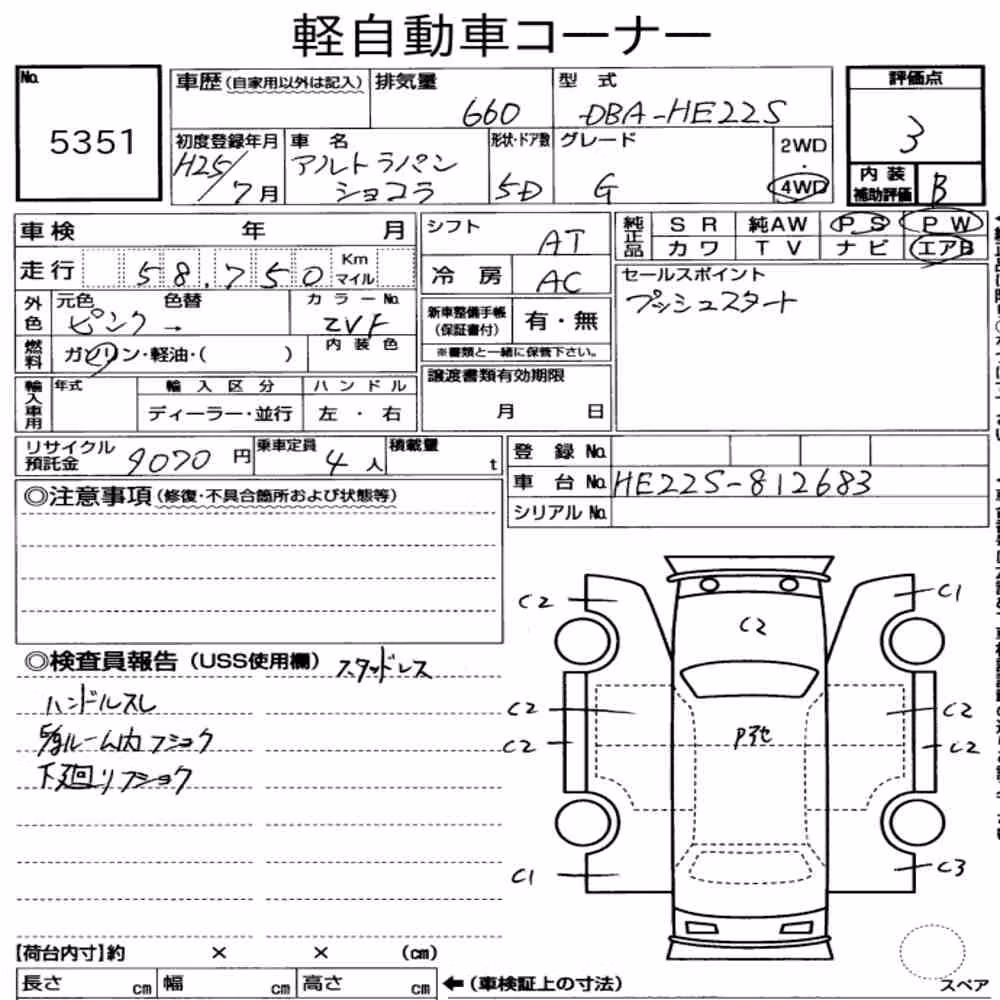 軽自動車コーナー
No. 5351
車歴 (自家用以外は記入) 排気量 660 型 式 DBA-HE22S
評価点 3
初度登録年月 H25/7月 車 名 アルトラパン ショコラ 形状・ドア数 5D グレード G 2WD・4WD
内装補助評価 B
車検 年 月
シフト AT
純正品 SR 純AW PS PW
カワ TV ナビ エアB
走行 58,750 Km マイル
冷房 AC
セールスポイント
プッシュスタート
外色 元色 ピンク → 色替 カラーNo. ZVF
新車整備手帳 (保証書付) 有・無
※書類と一緒に保管下さい。
燃料 ガソリン・軽油・( ) 内装色
輸入車用 年式 輸入区分 ハンドル
ディーラー・並行 左・右
譲渡書類有効期限
月 日
リサイクル預託金 9070円 乗車定員 4人 積載量 t
登録No.
車台No. HE22S-812683
シリアルNo.
◎注意事項 (修復・不具合箇所および状態等)
◎検査員報告 (USS使用欄) スタッドレス
ハンドルスレ
ルーム内フショク
下廻りフショク
C2 C1
C2
C2 C2
C2 C2
C1 C3
【荷台内寸】約 × × (cm)
長さ cm 幅 cm 高さ cm ←(車検証上の寸法)
スペア